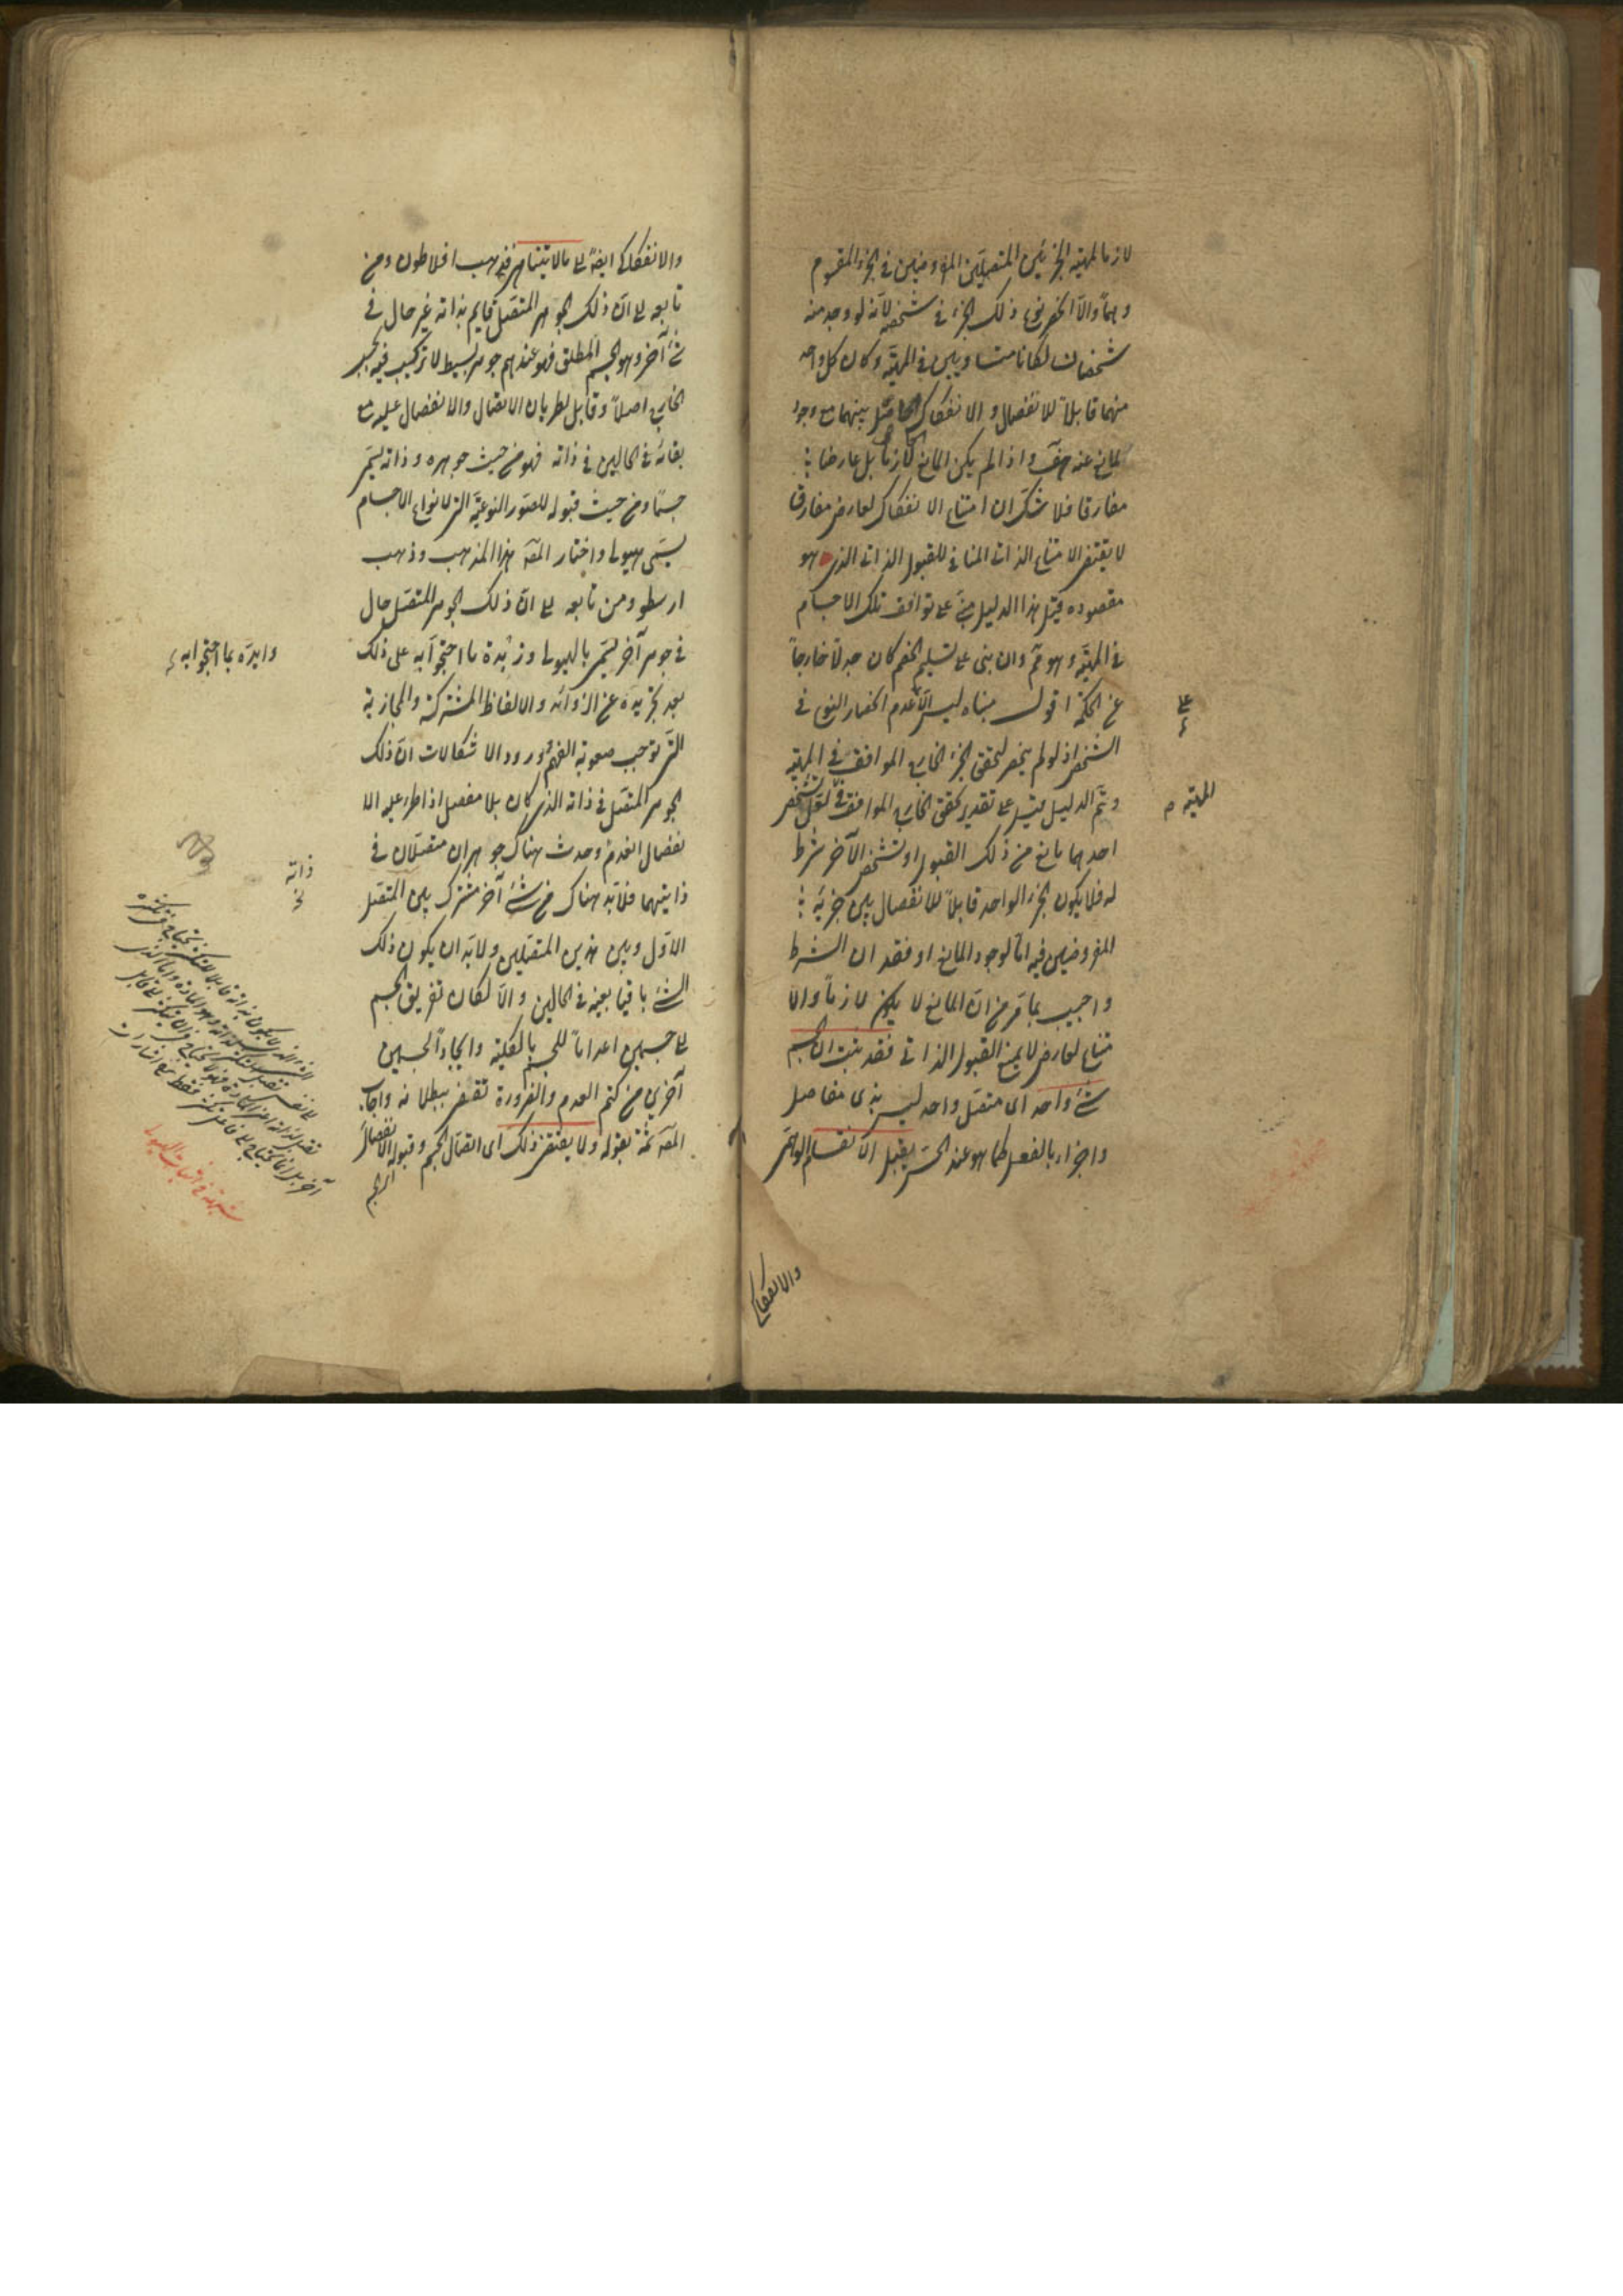 لازما لمهية الجزئين المتصلين المفروضين في الجزء المقسوم
وهماً والا انحصر نوع ذلك الجزء في شخصه لانه لو وجد منه
شخصان لكانا متساويين في المهية وكان كل واحد
منهما قابلاً للانفصال والانفكاك الحاصل بينهما مع وجود
المانع عنه هف واذا لم يكن المانع لازما بل عارضا
مفارقا فلا شك ان امتناع الانفكاك لعارض مفارق
لا يقتضي الامتناع الذاتي المنافي للقبول الذاتي الذي هو
مقصوده قيل هذا الدليل مبني على توافق تلك الاجسام
في المهية وهو مم وان بنى على تسليم الخصم كان جدلاً خارجاً
عن الحكمة اقول مبناه ليس الا عدم انحصار النوع في
الشخص اذ لو لم ينحصر لتحقق الجزء الخارجي الموافق في المهية
وتم الدليل قيل على تقدير تحقق الخارجي الموافق في لعل تشخص
المهية
احدهما مانع من ذلك القبول او تشخص الآخر شرط
له فلا يكون الجزء الواحد قابلاً للانفصال بين جزئيه
المفروضين فيه اما لوجود المانع او فقدان الشرط
واجيب بما مر من ان المانع لا يكون لازماً والا
متناع لعارض لا يمنع القبول الذاتي فقد ثبت ان الجسم
شئ واحد اى متصل واحد ليس بذى مفاصل
واجزاء بالفعل كما هو عند الحس يقبل الانقسام الوهمي
والانفكاكي
والانفكاكي ايضاً الى ما لا يتناهى فذهب افلاطون ومن
تابعه الى ان ذلك الجوهر المتصل قايم بذاته غير حال في
شئ آخر وهو الجسم المطلق فهو عندهم جوهر بسيط لا تركيب فيه بحسب
الخارج اصلاً وقابل لطريان الاتصال والانفصال عليه مع
بقائه في الحالين في ذاته فهو من حيث جوهره وذاته يسمى
جسماً ومن حيث قبوله للصور النوعية التي لانواع الاجسام
يسمى هيولى واختار المصه هذا المذهب وذهب
ارسطو ومن تابعه الى ان ذلك الجوهر المتصل حال
في جوهر آخر يسمى بالهيولى وزبدة ما احتجوا به على ذلك
وايده بما احتجوا به
بعد تجريده عن الزوائد والالفاظ المشتركة والمجازية
التي توجب صعوبة الفهم وورود الاشكالات ان ذلك
الجوهر المتصل في ذاته الذي كان بلا مفصل اذا طرء عليه الا
نفصال انعدم وحدث هناك جوهران متصلان في
ذاته
ذاتيهما فلابد هناك من شئ آخر مشترك بين المتصل
الاول وبين هذين المتصلين ولابد ان يكون ذلك
الشئ باقيا بعينه في الحالين والا لكان تفريق الجسم
الى جسمين اعداماً للجسم بالكلية وايجاداً لجسمين
آخرين من كتم العدم والضرورة تقضي ببطلانه واجاب
المصه عنه بقوله ولا يقتضى ذلك اى اتصال الجسم وقبوله الانفصال